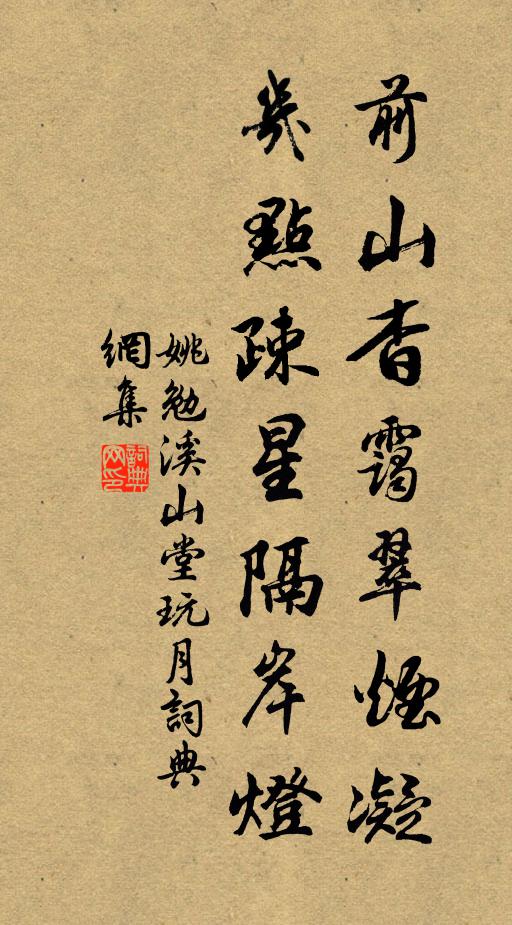 前山杳靄翠煙凝
幾點疎星隔岸燈
姚勉溪山堂玩月詞典
網集
詞典
网印